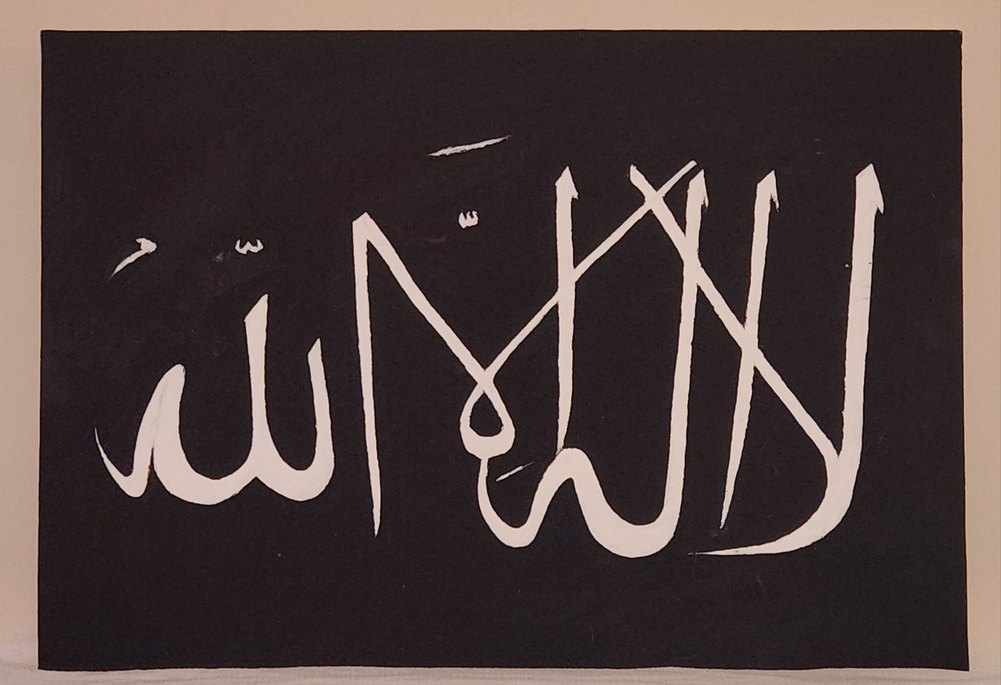 لا إله إلّا اللّهُ